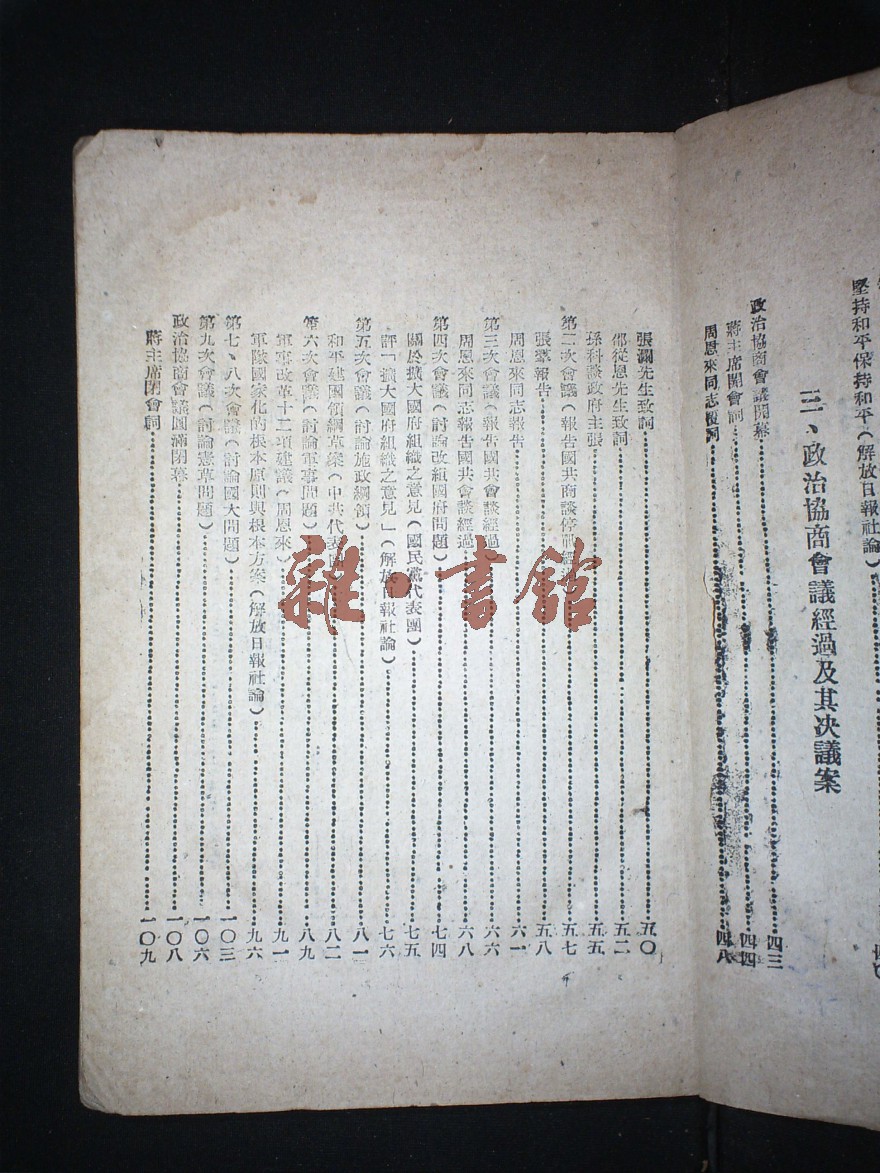 堅持和平保持和平(解放日報社論)
三、政治協商會議經過及其決議案
政治協商會議開幕 四三
蔣主席開會詞 四四
周恩來同志覆詞 四八
張瀾先生致詞 五〇
邵從恩先生致詞 五二
孫科談政府主張 五五
第二次會議(報告國共商談停戰經 五七
張羣報告 五八
周恩來同志報告 六一
第三次會議(報告國共會談經過 六六
周恩來同志報告國共會談經過 六八
第四次會議(討論改組國府問題) 七四
關於擴大國府組織之意見(國民黨代表團) 七五
評「擴大國府組織之意見」(解放日報社論) 七六
第五次會議(討論施政綱領) 八一
和平建國領綱草案(中共代表 八二
第六次會議(討論軍事問題) 八九
軍事改革十二項建議(周恩來) 九一
軍隊國家化的根本原則與根本方案(解放日報社論) 九六
第七、八次會議(討論國大問題) 一〇三
第九次會議(討論憲草問題) 一〇六
政治協商會議圓滿閉幕 一〇八
蔣主席閉會詞 一〇九
雜·書館